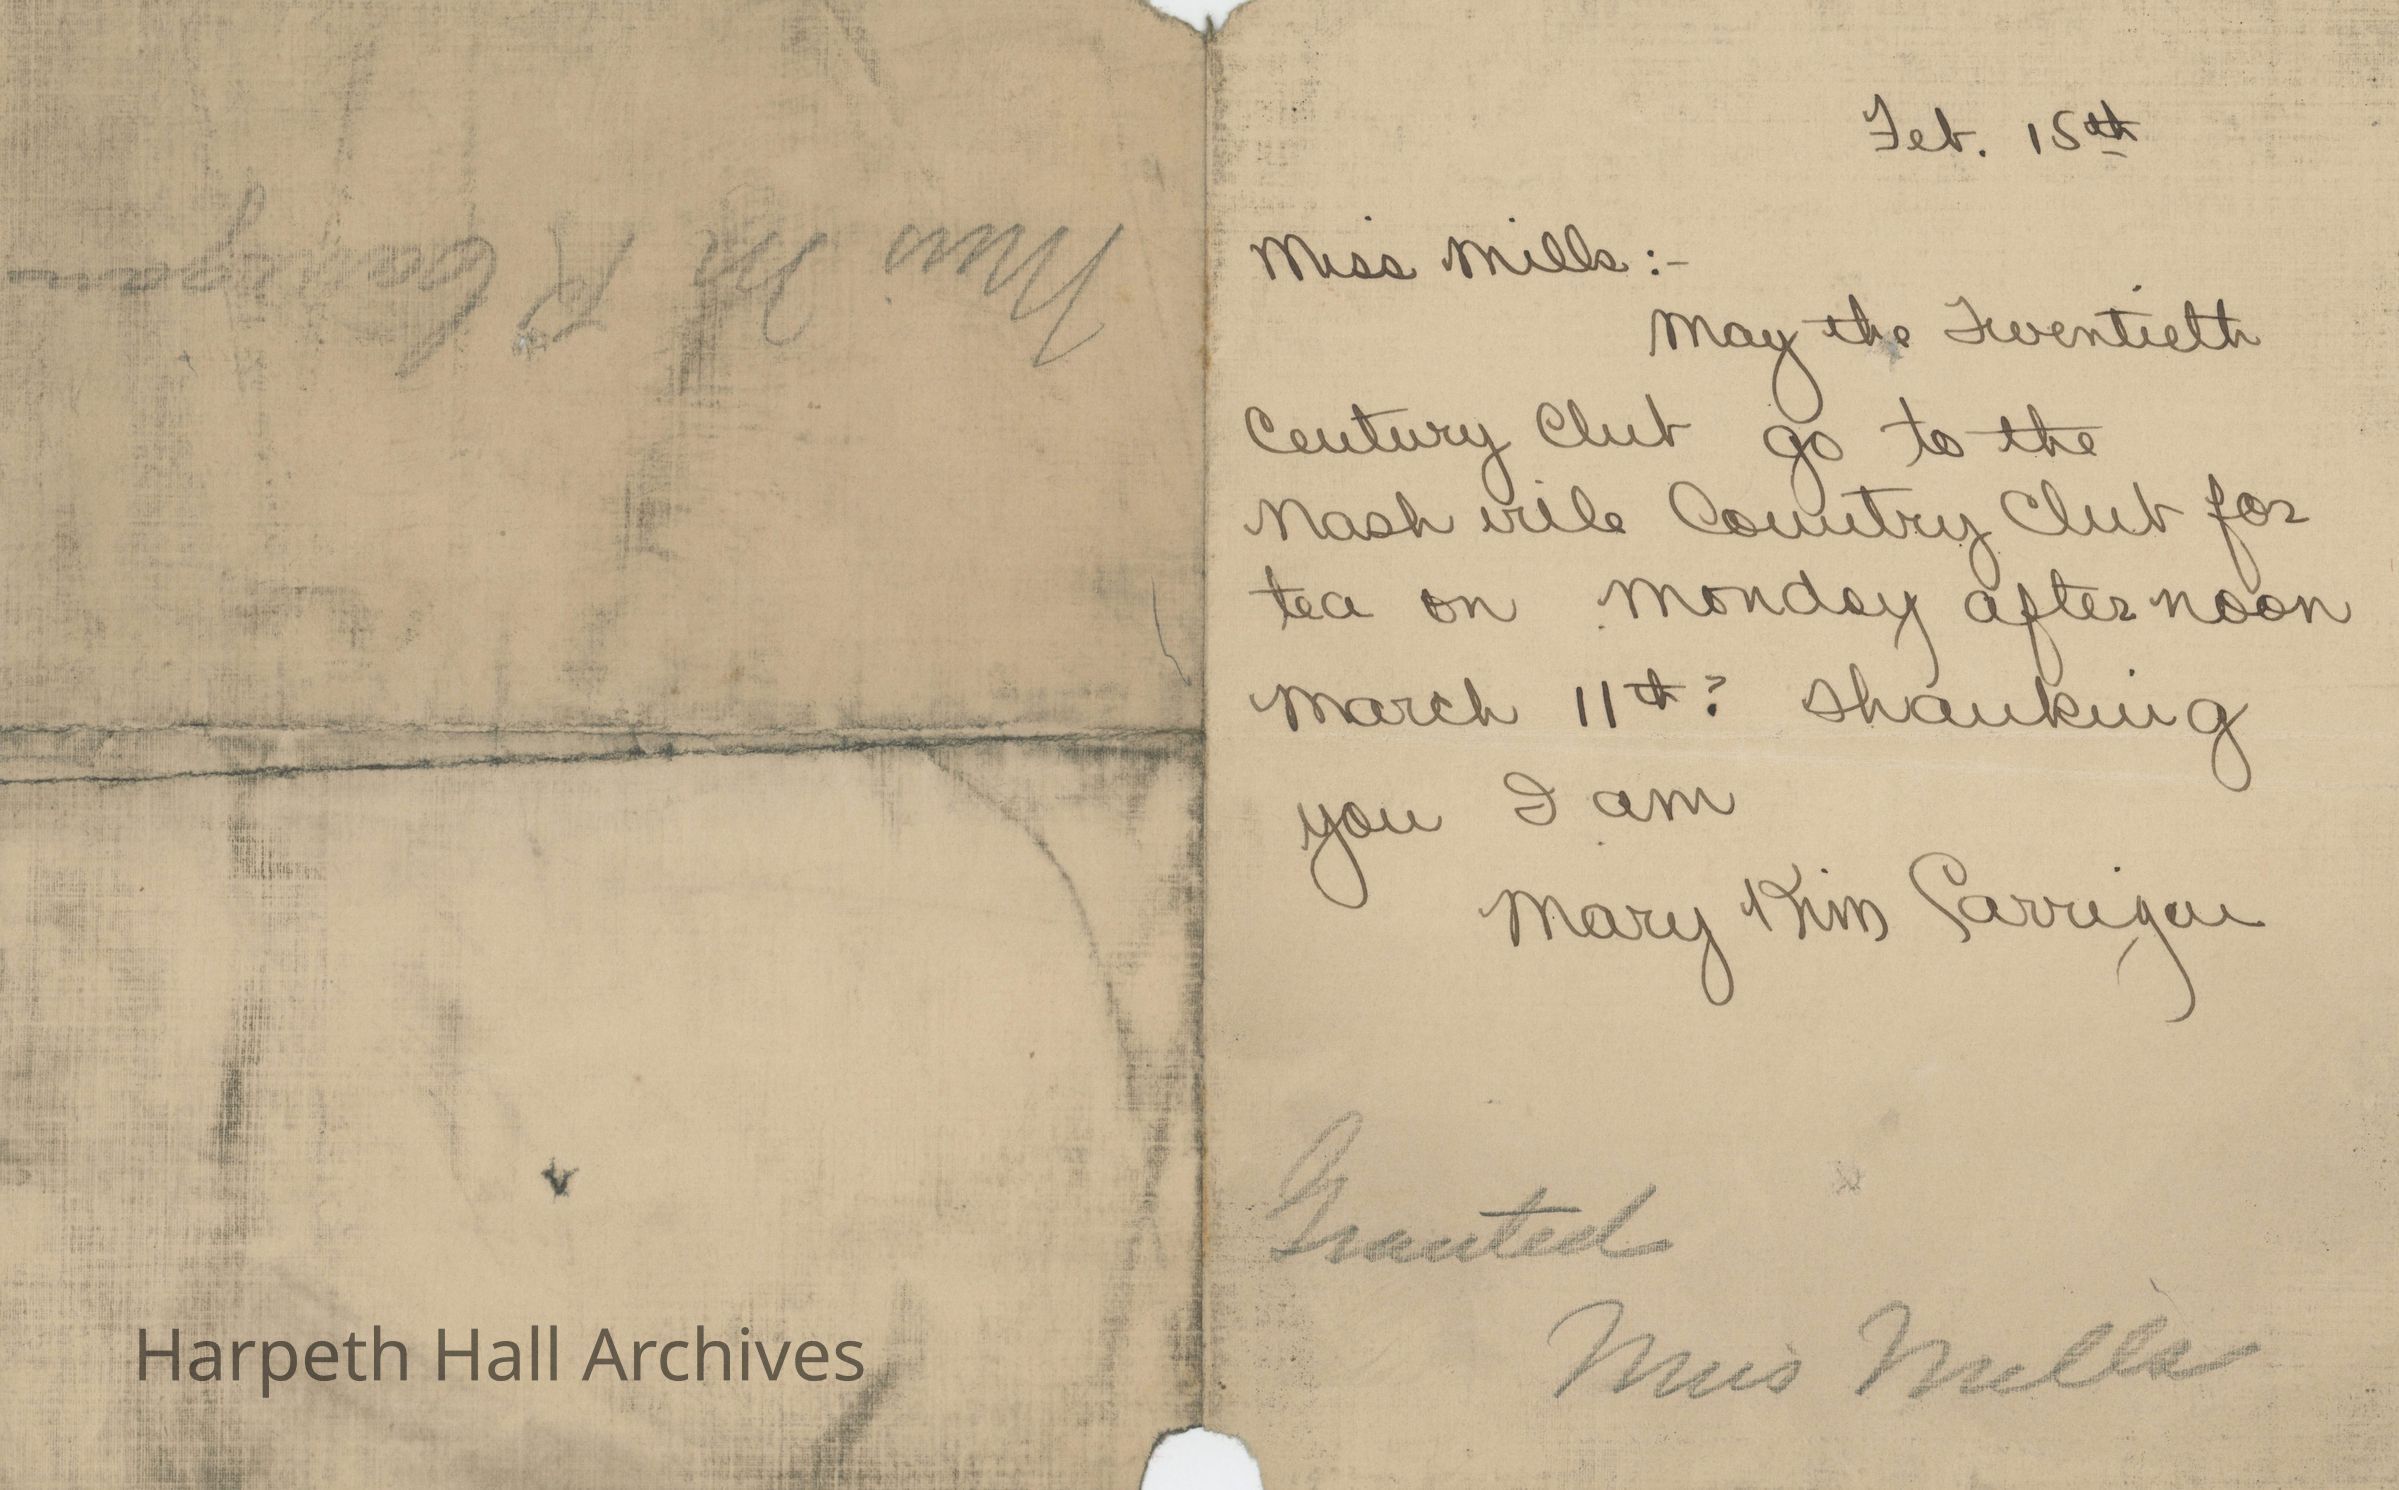 Miss M K Carrigan
Harpeth Hall Archives
Feb. 15th
Miss Mills:-
May the Twentieth
Century Club go to the
Nash ville Country Club for
tea on Monday afternoon
March 11th? Thanking
you I am
Mary Kim Carrigan
Granted
Miss Mills